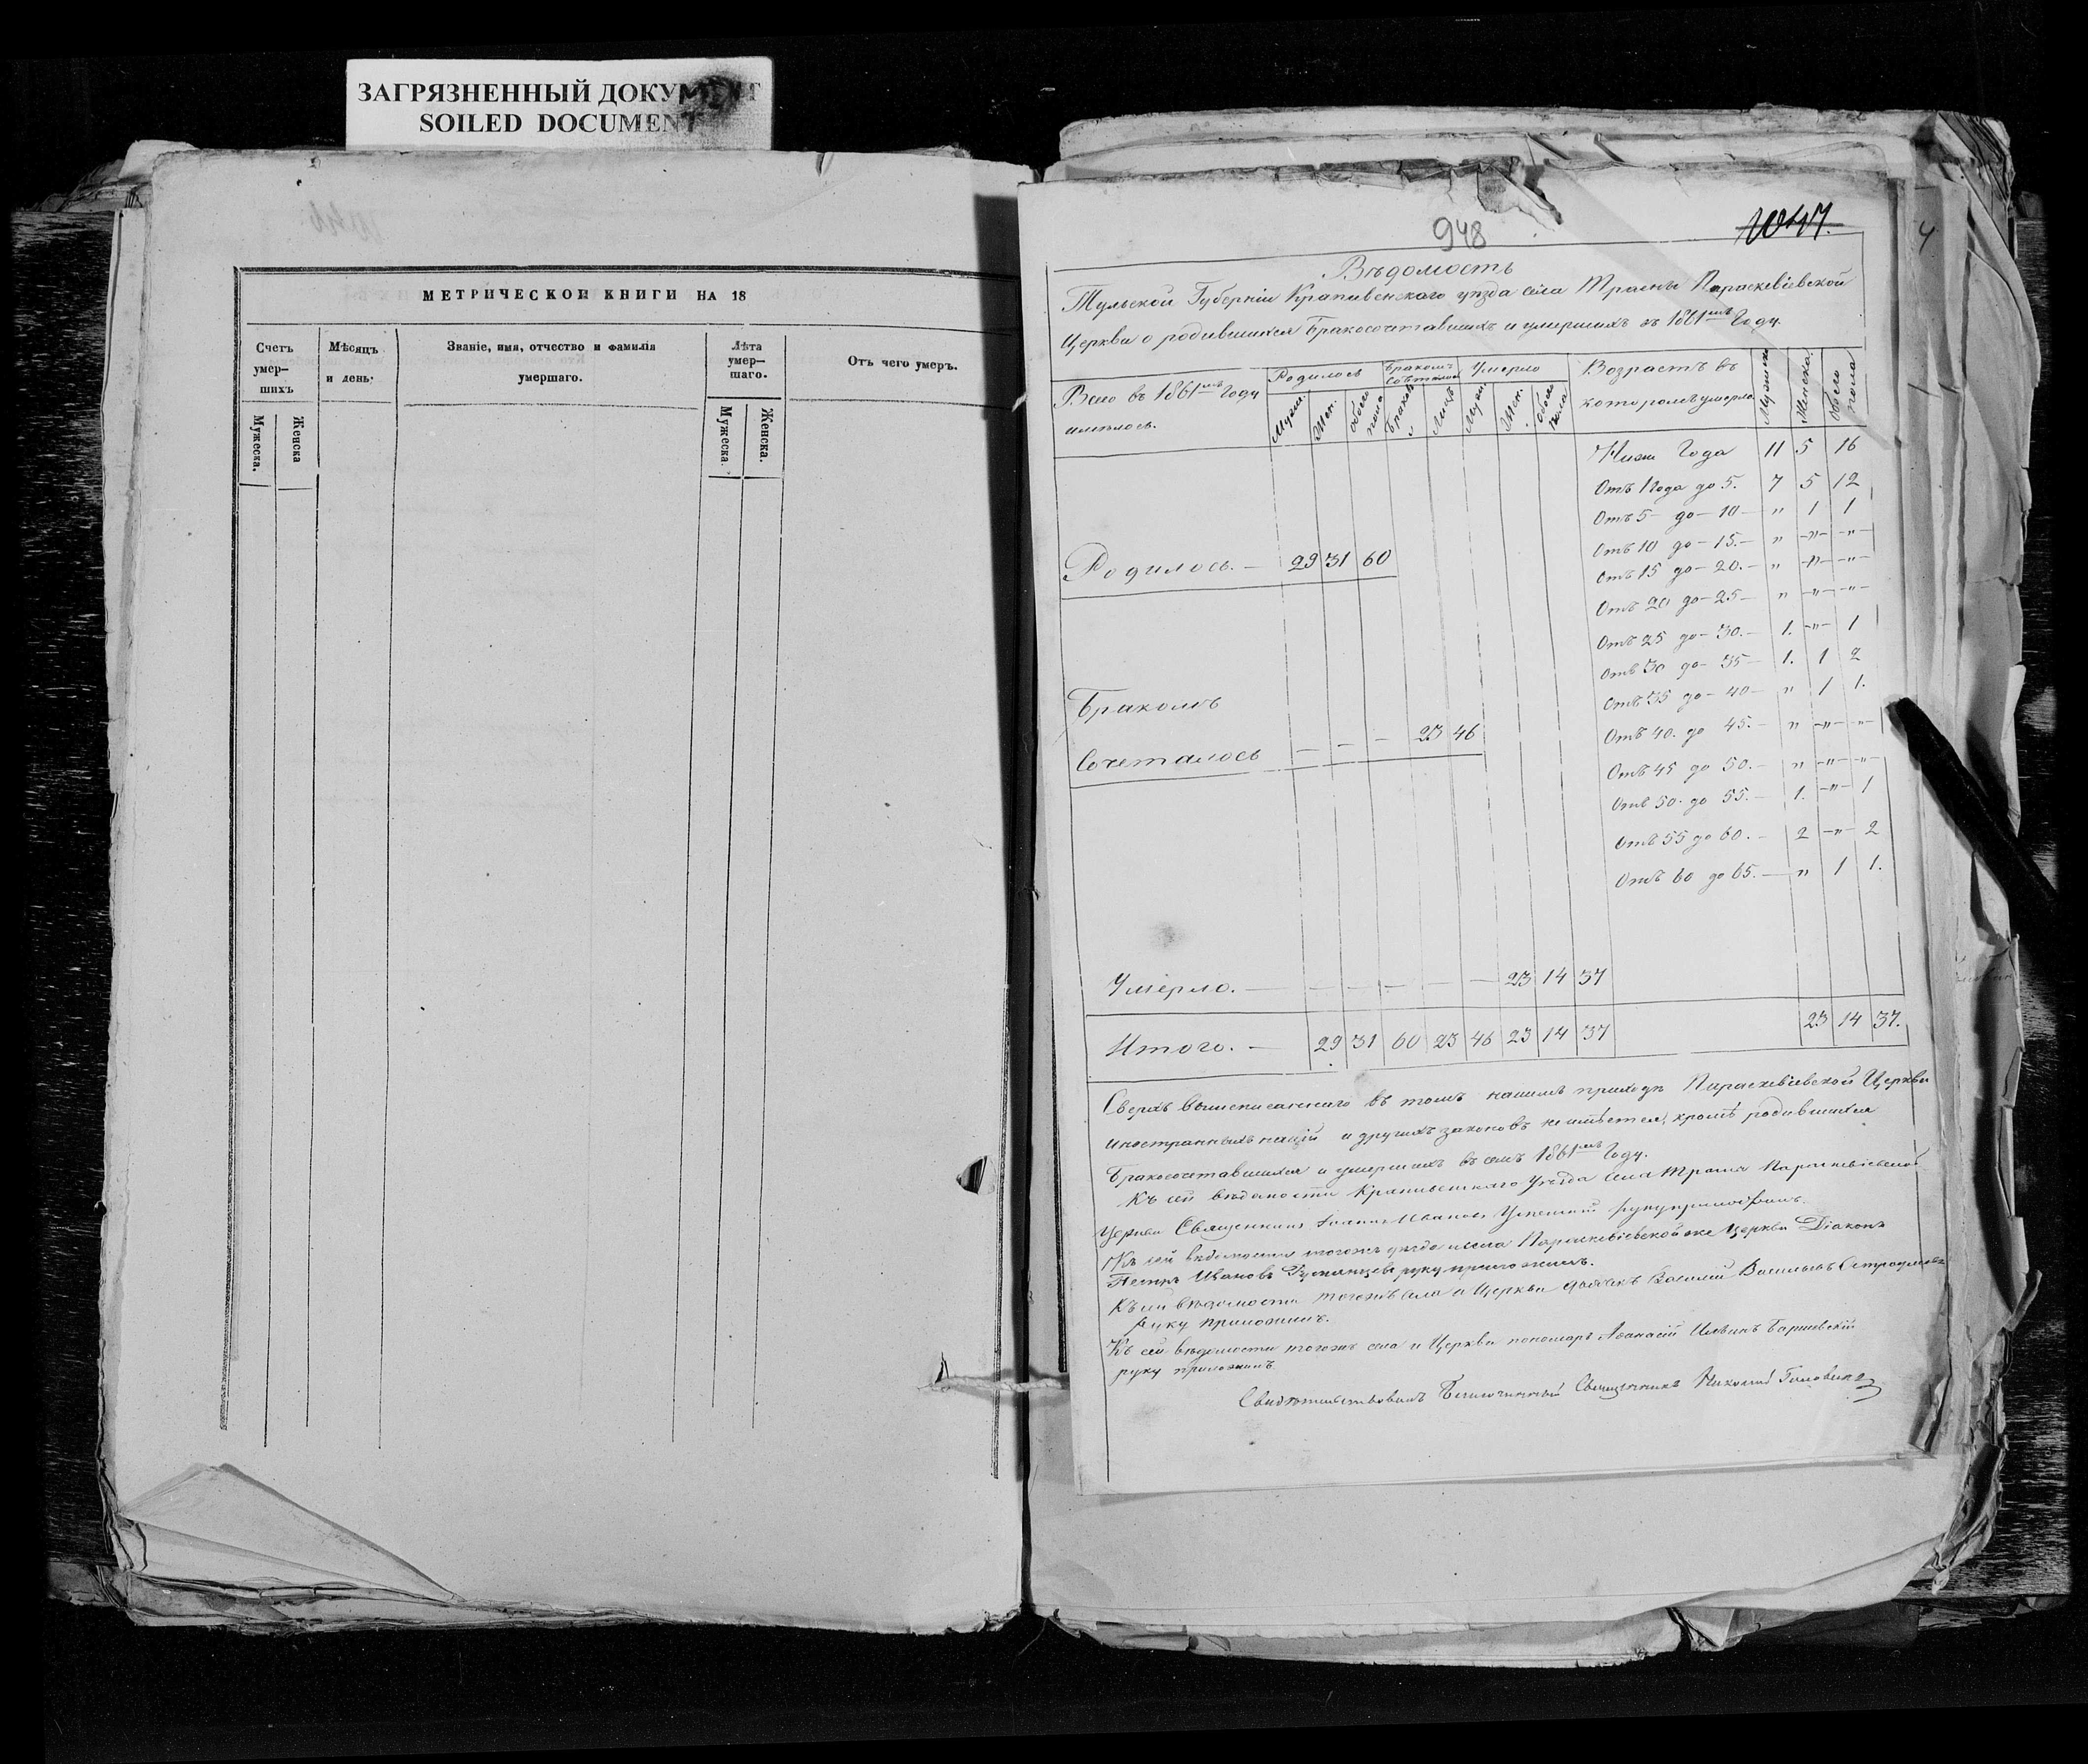 ЗАГРЯЗНЕННЫЙ ДОКУМЕНТ
SOILED DOCUMENT
МЕТРИЧЕСКОЙ КНИГИ НА 18
Счетъ умер—шихъ
Мѣсяцъ и день.
Званіе, имя, отчество и фамилія умершаго.
Лѣта умер—шаго.
Отъ чего умеръ.
Мужеска. Женска
Мужеска. Женска.
948
1047.
Вѣдомость
Тульской Губерніи Крапивенскаго уѣзда села Прасковіевской
Церкви о родившихся бракосочетавшихъ и умершихъ въ 1861мъ Году.
Всего въ 1861мъ Году имѣлось.
Родилось
Бракомъ
Умерло
Возрастъ въ которомъ умерло
Мужска Женска. Обоего пола
Муж. Жен. обоего пола браковъ Лицъ Муж. Жен. обоего пола
Ниже Года 11 5 16
Отъ 1 Года до 5. 7 5 12
Отъ 5 — до — 10 — " 1 1
Отъ 10 до — 15. — " —"— —"—
Отъ 15 до — 20. — " —"— —"—
Отъ 20 до — 25 — " —"— —"—
Отъ 25 до — 30. — 1. —"— 1
Отъ 30 до — 35 — 1. 1 2
Отъ 35 до — 40 — " 1 1.
Отъ 40. до 45. — " —"— —"—
Отъ 45 до 50. — " —"— —"—
Отъ 50. до 55. — 1. —"— 1
Отъ 55 до 60. — 2 —"— 2
Отъ 60 до 65. — " 1 1.
Родилось. — 29 31 60
Бракомъ
Сочеталось — — — 23 46
Умерло. — — — — — — 23 14 37
Итого. — 29 31 60 23 46 23 14 37 23 14 37.
Сверхъ вышеписаннаго въ томъ нашемъ приходѣ Параскевіевской Церкви
иностранныхъ націй и другихъ законовъ неимѣется, кромѣ родившихся
Бракосочетавшихся и умершихъ въ семъ 1861мъ Году.
Къ сей вѣдомости Крапивенскаго Уѣзда села Параскевіевской
Церкви Священникъ Іоаннъ Ивановъ руку приложилъ.
Къ сей вѣдомости тогожъ уѣзда и села Параскевіевской же Церкви Діаконъ
Петръ Ивановъ руку приложилъ.
Къ сей вѣдомости тогожъ села и Церкви дьячекъ Василій Васильевъ
руку приложилъ.
Къ сей вѣдомости тогожъ села и Церкви пономарь Аѳанасій Ильинъ
руку приложилъ
Свидѣтельствовалъ Благочинный Священникъ Николай Головинъ